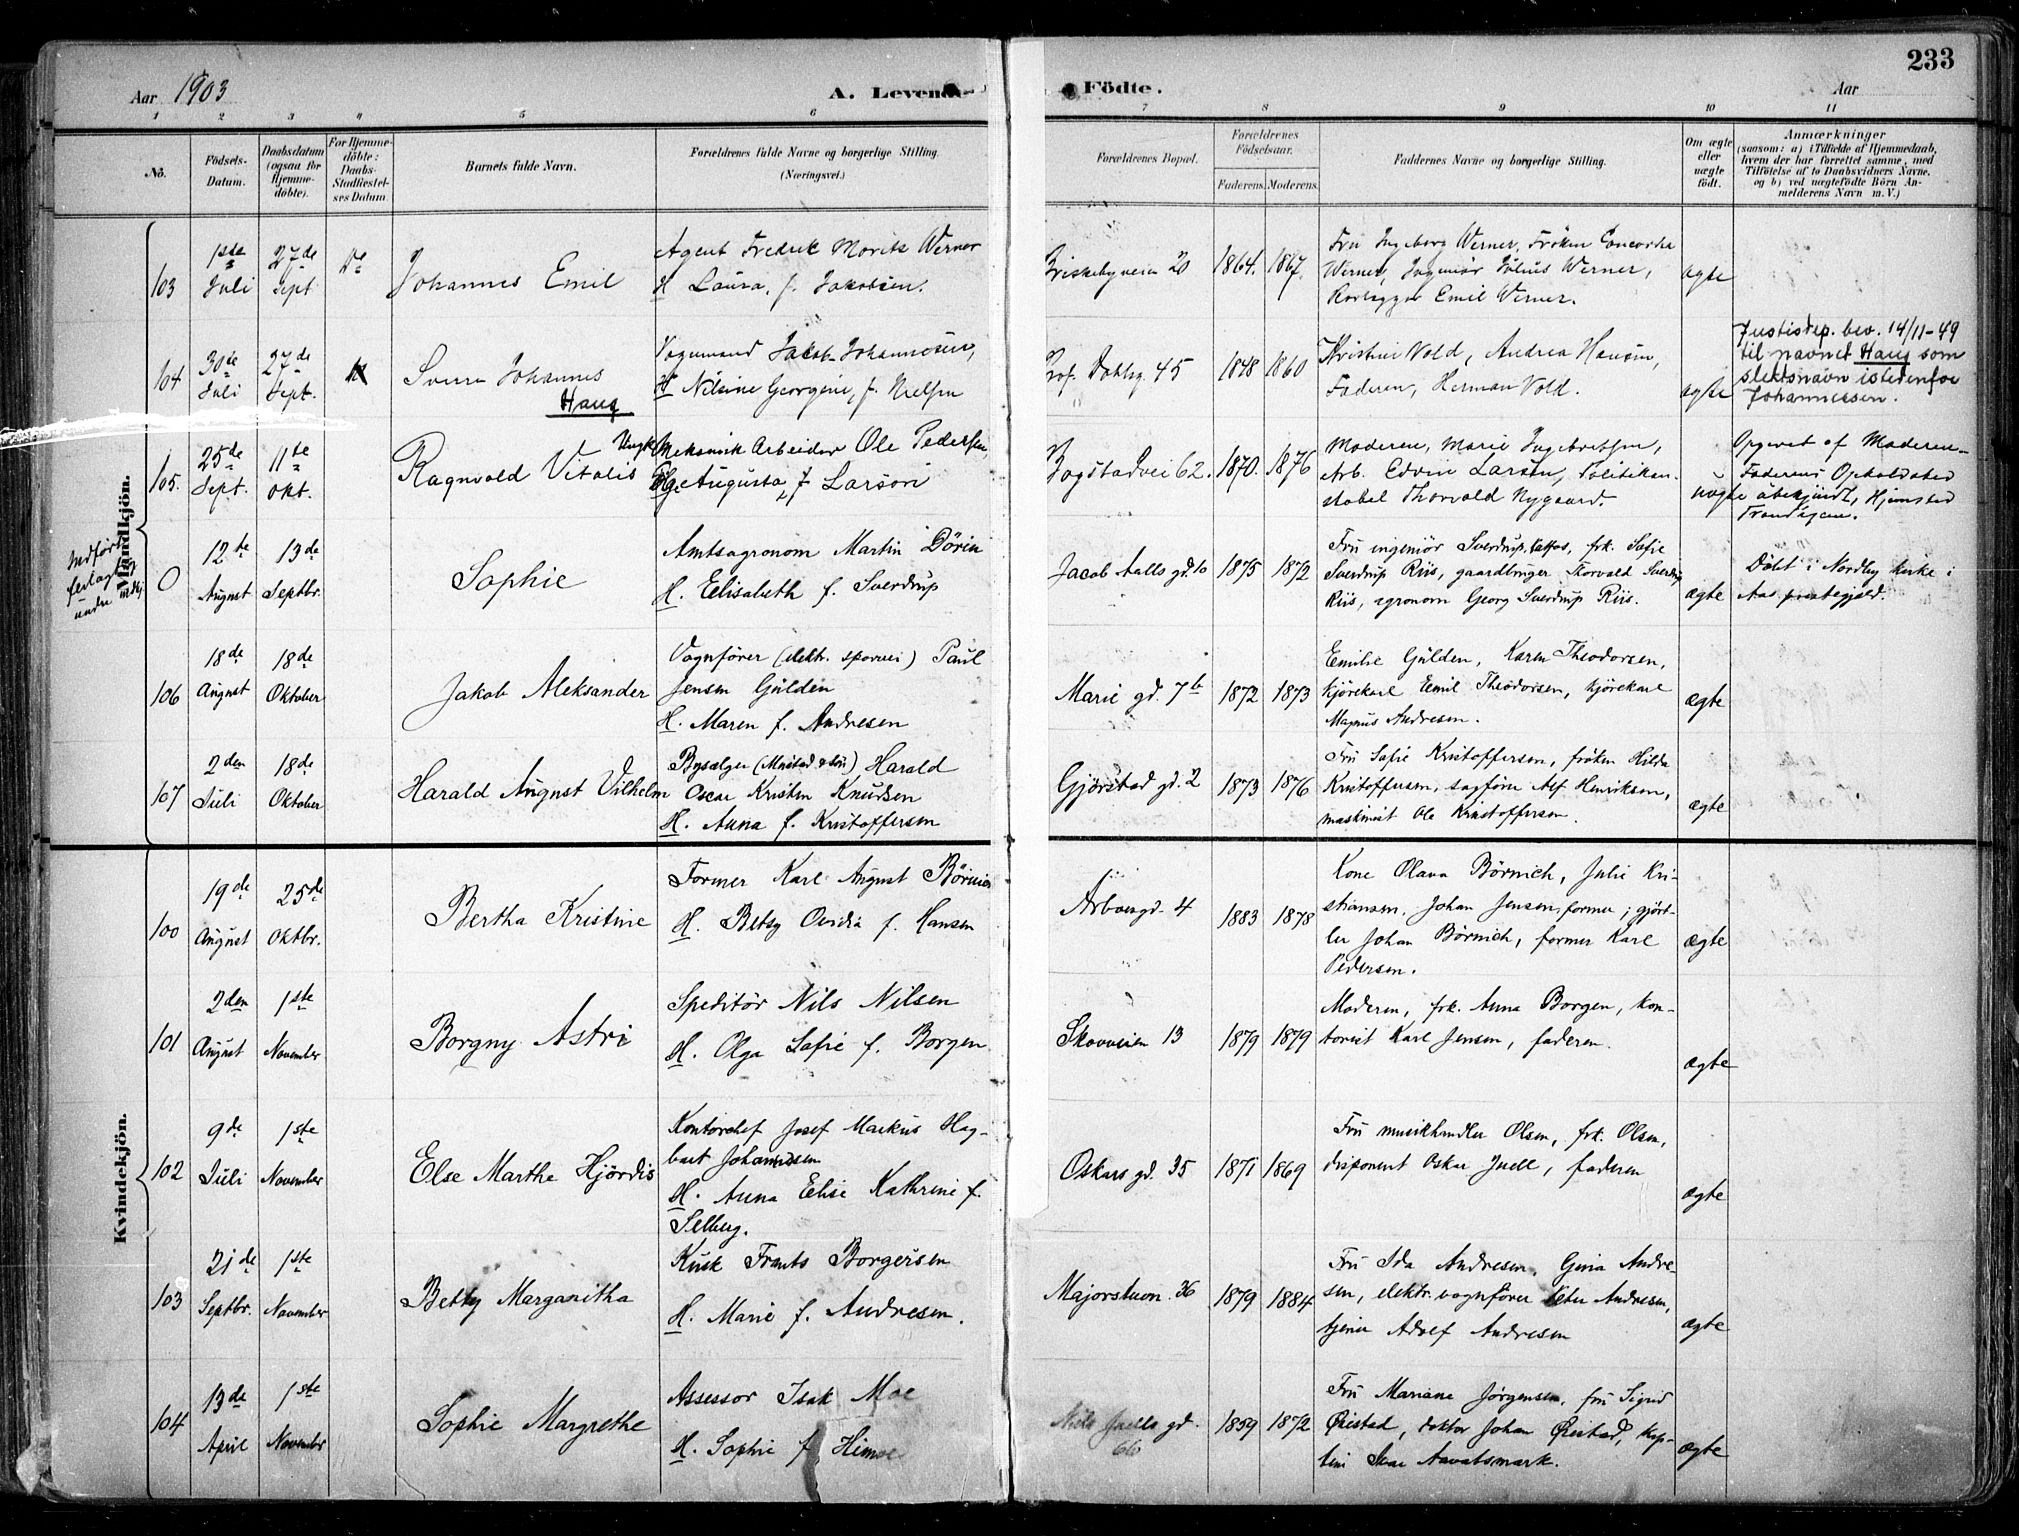 233
Aar 1903
A. Levende
Födte.
Aar
1 2 3 4 5 6 7 8 9 10 11
No.
Födsels-
Datum.
Daabsdatum
(ogsaa for
Hjemme-
döbte).
For Hjemme-
döbte:
Daabs-
Stadfæstel-
ses Datum.
Barnets fulde Navn.
Forældrenes fulde Navne og borgerlige Stilling.
(Næringsvei.)
Forældrenes Bopæl.
Forældrenes
Födselsaar.
Faderens. Moderens.
Faddernes Navne og borgerlige Stilling.
Om ægte
eller
uægte
födt.
Anmærkninger
(saasom: a) i Tilfælde af Hjemmedaab,
hvem der har forrettet samme, med
Tilföielse af to Daabsvidners Navne,
og b) ved uægtefödte Börn An-
melderens Navn m. V.)
Mandkjön.
103
1ste
Juli
27de
Sept
Johannes Emil
Agent Fredrik Moritz Werner
H Laura, f. Jakobsen.
Briskebyveien 20
1864. 1867.
Fru Ingeborg Werner, Fröken Concordia
Werner, Ingeniör Julius Werner,
Rörlægger Emil Werner.
ægte
104
30te
Juli
27de
Sept.
Sverre Johannes
Haug
Vognmand Jakob Johannesen,
H Nilsine Georgine, f. Nielsen
Prof. Dahlsg. 45
1848 1860
Kristine Vold, Andrea Hansen,
Faderen, Herman Vold.
ægte
Justisdep. bev. 14/11-49
til navnet Haug som
slektsnavn istedenfor
Johannessen.
105.
25de
Sept.
11te
Okt.
Ragnvald Vitalis
Ungk. Mekanisk Arbeider Ole Pedersen,
Pige Augusta, f Larson
Bogstadvei 62.
1870. 1876
Moderen, Marie Ingebretsen,
Arb. Edvin Larsen, Politikon-
stabel Thorvald Nygaard.
uægte
Opgivet af Moderen-
Faderens Opholdssted
ubekjendt, Hjemsted
Trondhjem.
Indført
under
0
12te
August
13de
Septbr.
Sophie
Amtsagronom Martin Dörin
H. Elisabeth f. Sverdrup
Jacob Aalls gd. 10
1875 1872
Fru ingeniör Sverdrup, frk. Sofie
Sverdrup Riis, gaardbruger Thorvald Sverdrup
Riis, agronom Georg Sverdrup Riis.
ægte
Döbt i Nordby kirke i
Aas prestegjeld.
106
18de
August
18de
Oktober
Jakob Aleksander
Vognförer (elektr. sporvei) Paul
Jensen Gulden
H. Maren f. Andresen
Marie gd. 7b
1872 1873
Emilie Gulden, Karen Theodorsen,
kjörekarl Emil Theodorsen, kjörekarl
Magnus Andresen.
ægte
107
2den
Juli
18de
Oktober
Harald August Vilhelm
Bysælger (Mustad & sön) Harald
Oscar Kristen Knudsen
H. Anna f. Kristoffersen
Gjörstad gd. 2
1873 1876
Fru Sofie Kristoffersen, fröken Hilda
Kristoffersen, sagförer Alf Henriksen,
maskinist Ole Kristoffersen.
ægte
Kvindekjön.
100
19de
August
25de
Oktbr.
Bertha Kristine
Former Karl August Börnich
H. Betsy Ovidia f. Hansen
Arboesgd. 4
1883 1878
Kone Olava Börnich, Julie Kri-
stiansen, Johan Jensen, former, gjört-
ler Johan Börnich, former Karl
Pedersen.
ægte
101
2den
August
1ste
November
Borgny Astri
Speditör Nils Nilsen
H. Olga Sofie f. Borgen
Skovveien 13
1879 1879
Moderen, frk. Anna Borgen, kon-
torist Karl Jensen, faderen.
ægte
102
9de
Juli
1ste
November
Else Marthe Hjördis
Kontorchef Josef Markus Hag-
bart Johannesen
H. Anna Elise Kathrine f.
Selberg.
Oskars gd. 35
1871 1869
Fru musikhandler Olsen, frk. Olsen,
disponent Oskar Juell, faderen
ægte
103
21de
Septbr.
1ste
November
Betty Margaritha
Kusk Frants Borgersen
H. Marie f. Andresen.
Majorstuen 36
1879 1884
Fru Ida Andresen, Gina Andre-
sen, elektr. vognförer Peter Andresen,
tjener Adolf Andresen
ægte
104
13de
April
1ste
November
Sophie Margrethe
Assessor Isak Moe
H. Sophie f Himoe
Niels Juells gd.
66
1859 1872
Fru Mariane Jörgensen, fru Sigrid
Örestad, doktor Johan Örestad, kap-
tein Ivar Aavatsmark.
ægte